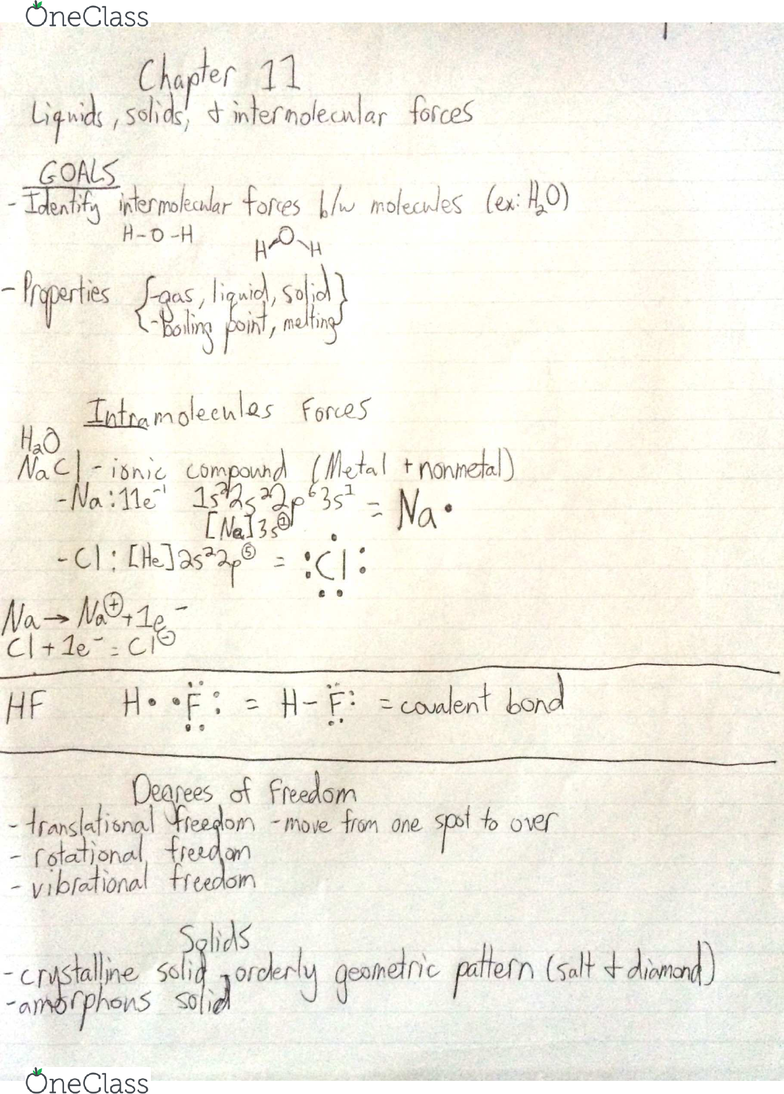 OneClass
Chapter 11
Liquids, solids, & intermolecular forces
GOALS
- Identify intermolecular forces b/w molecules (ex: H₂O)
H-O-H
H O H
- Properties {-gas, liquid, solid}
{-Boiling point, melting}
Intramolecules Forces
H₂O
NaCl - ionic compound (Metal + nonmetal)
- Na: 11e⁻¹ 1s²2s²2p⁶3s¹ = Na•
[Na]3s①
- Cl: [He]2s²2p⑤ = :Cl:
Na → Na⊕ + 1e⁻
Cl + 1e⁻ = Cl⊖
HF H• •F: = H-F: = covalent bond
Degrees of Freedom
- translational freedom - move from one spot to over
- rotational freedom
- vibrational freedom
Solids
- crystalline solid - orderly geometric pattern (salt & diamond)
- amorphons solid
OneClass